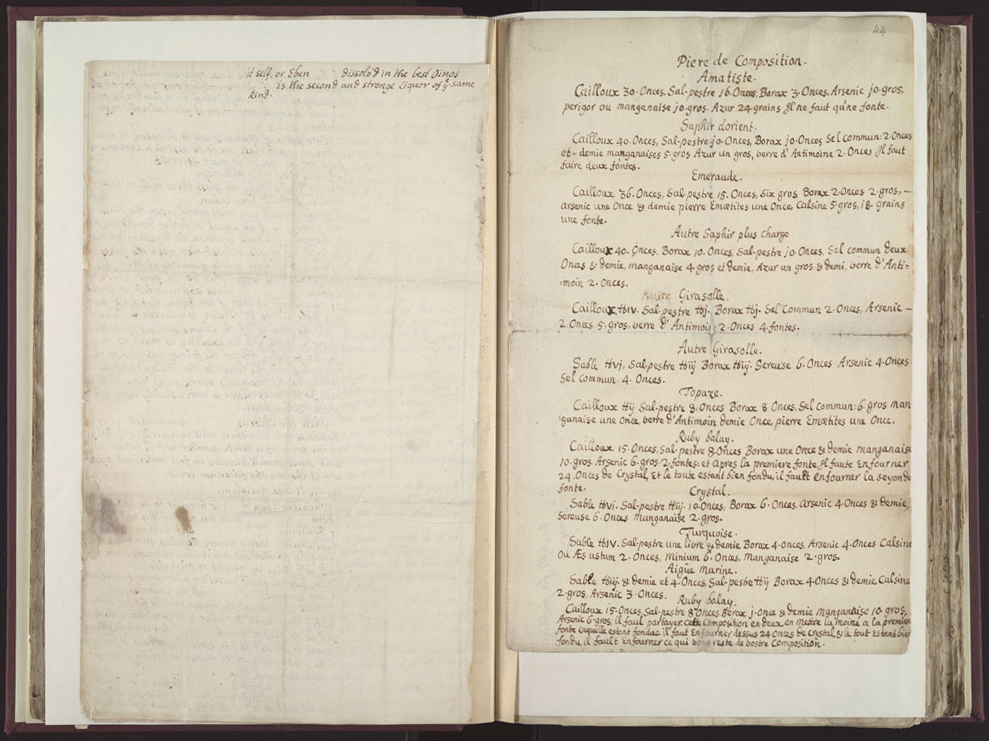 it self, or Eben dissolv'd in the best Oings
is the second and stronge Liquor of yͤ same
kind.
44
Piere de Composition.
Amatiste.
Cailloux 30. Onces, Sal-pestre 16. Onces, Borax 3. Onces, Arsenic jo. gros,
perigor ou manganaise jo. gros. Azur 24 grains Jl ne faut qu'ne fonte.
Saphir d'orient.
Cailloux 40. Onces, Sal-pestre jo. Onces, Borax jo. Onces Sel commun: 2. Onces
et - demie manganaises 5. gros Azur un gros, verre d'Antimoine 2. Onces Jl faut
faire deux fontes.
Emeraude.
Cailloux 36. Onces, Sal-pestre 15. Onces, Six gros Borax 2. Onces 2. gros, -
arsenic une Once & demie pierre Emœtites une Once, Calsine 5. gros, 18. grains
une fonte.
Autre Saphir plus charge
Cailloux 40. Onces, Borax 10. Onces, Sal-pestre jo. Onces, Sel commun deux
Onces & demie, manganaise 4. gros et demie, Azur un gros & demi, verre d'Anti-
moin 2. Onces.
Autre Girasolle.
Cailloux, ℔iv. Sal-pestre ℔j. Borax ℔j. Sel Commun 2. Onces, Arsenic -
2. Onces 5. gros, verre d'Antimoin 2. Onces 4. fontes.
Autre Girasolle.
Sable ℔vj, Sal-pestre ℔iij Borax ℔iij. Sereuse 6. Onces Arsenic 4. Onces
Sel commun. 4. Onces.
Topaze.
Cailloux ℔ij Sal-pestre 8. Onces Borax 8 Onces, Sel Commun: 6. gros Man-
ganaise une Once, verre d'Antimoin demie Once, pierre Emœtites une Once.
Ruby balay.
Cailloux 15. Onces, Sal-pestre 8. Onces Borax une Once & demie manganaise
10. gros, Arsenic 6. gros. 2. fontes: et apres la premiere fonte, Jl faute Enfourner
24. Onces de Crystal, Et le toute estant bien fondu, il fault Enfourner la seyonde
fonte.
Crystal.
Sable ℔vj. Sal-pestre ℔iij. 10. Onces, Borax 6. Onces, Arsenic 4. Onces & demie,
Sereuse 6. Onces manganaise 2. gros.
Turquoise.
Sable ℔IV. Sal-pestre une livre & demie Borax 4. onces, Arsenic 4. Onces Calsine
Ou Æs ustum 2. Onces, Minium 6. Onces, Manganaise 2. gros.
Aigüe Marine.
Sable ℔iij. & demie et 4. Onces, Sal-pestre ℔ij Borax 4. Onces & demie, Calsine
2. gros, Arsenic 3. Onces.
Ruby balay.
Cailloux 15. Onces, Sal-pestre 8. Onces Borax j. Once & demie Manganaise 10. gros,
Arsenic 6. gros; il faut partager cete Composition en deux, en mettre la moine a la premier
fonte laquelle estant fondue il faut Enfourner dessus 24 Onces de Crystal, & le tout estant bien
fondu, il fault Enfourner ce qui vous reste de vostre Composition.